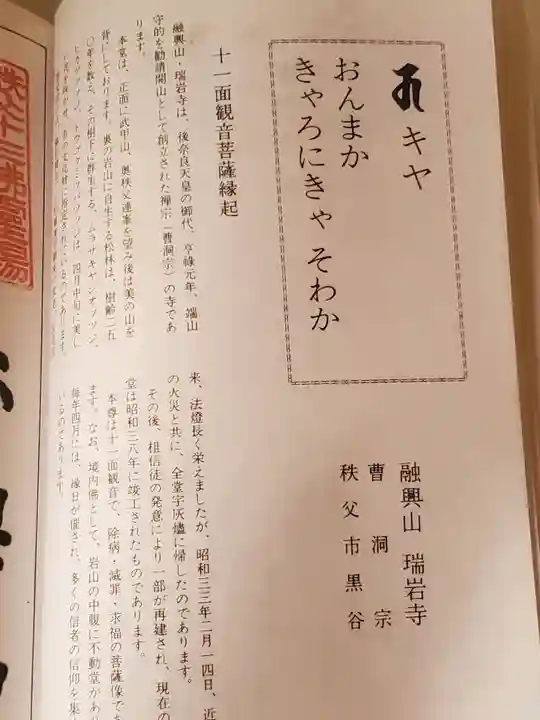 キャ
おんまか
きゃろにきゃ そわか
融興山 瑞岩寺
曹洞宗
秩父市黒谷
十一面観音菩薩縁起
融興山・瑞岩寺は、後奈良天皇の御代、亨祿元年、端山
守的を勧請開山として創立された禅宗（曹洞宗）の寺であ
ります。
本堂は、正面に武甲山、奥秩父連峯を望み後は美の山を
背にしております。裏の岩山に自生する松林は、樹齢二五
〇年を数え、その樹下に群生する、ムラサキヤシオツツジ、
ヒカゲツツジ、トウゴクミツバツツジは、四月中旬に美し
来、法燈長く栄えましたが、昭和三三年二月一四日、近
の火災と共に、全堂宇灰燼に帰したのであります。
その後、檀信徒の発意により一部が再建され、現在の
堂は昭和三八年に竣工されたものであります。
本尊は十一面観音で、除病・滅罪・求福の菩薩像であ
ます。なお、境内佛として、岩山の中腹に不動堂があり
毎年四月には、縁日が催され、多くの信者の信仰を集め
いるのであります。